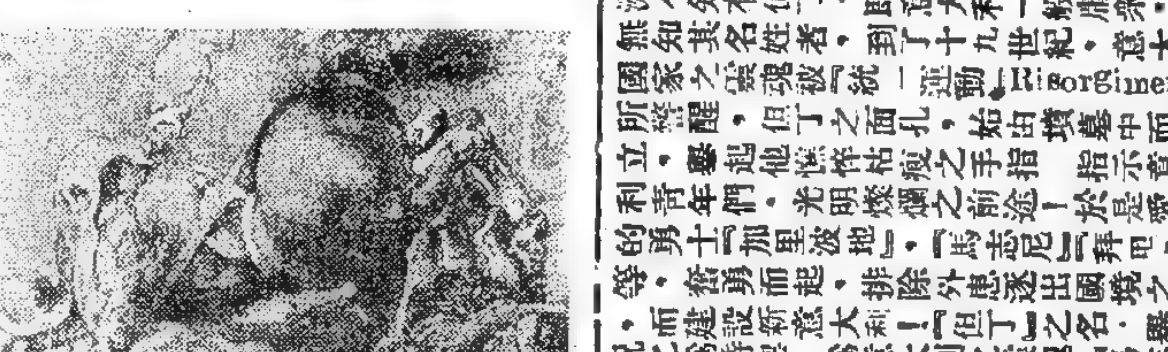 無知其名姓者，到了十九世紀，意大
國家之靈魂被『統一運動』Risorgime
所警醒，但丁之面孔，始由墳墓中而
立，舉起他憔悴枯瘦之手指 指示意
利青年們，光明燦爛之前途！於是愛
的勇士『加里波地』，『馬志尼』『拜
等，奮勇而起，排除外患逐出國境之
，而建設新意大利！『但丁』之名，